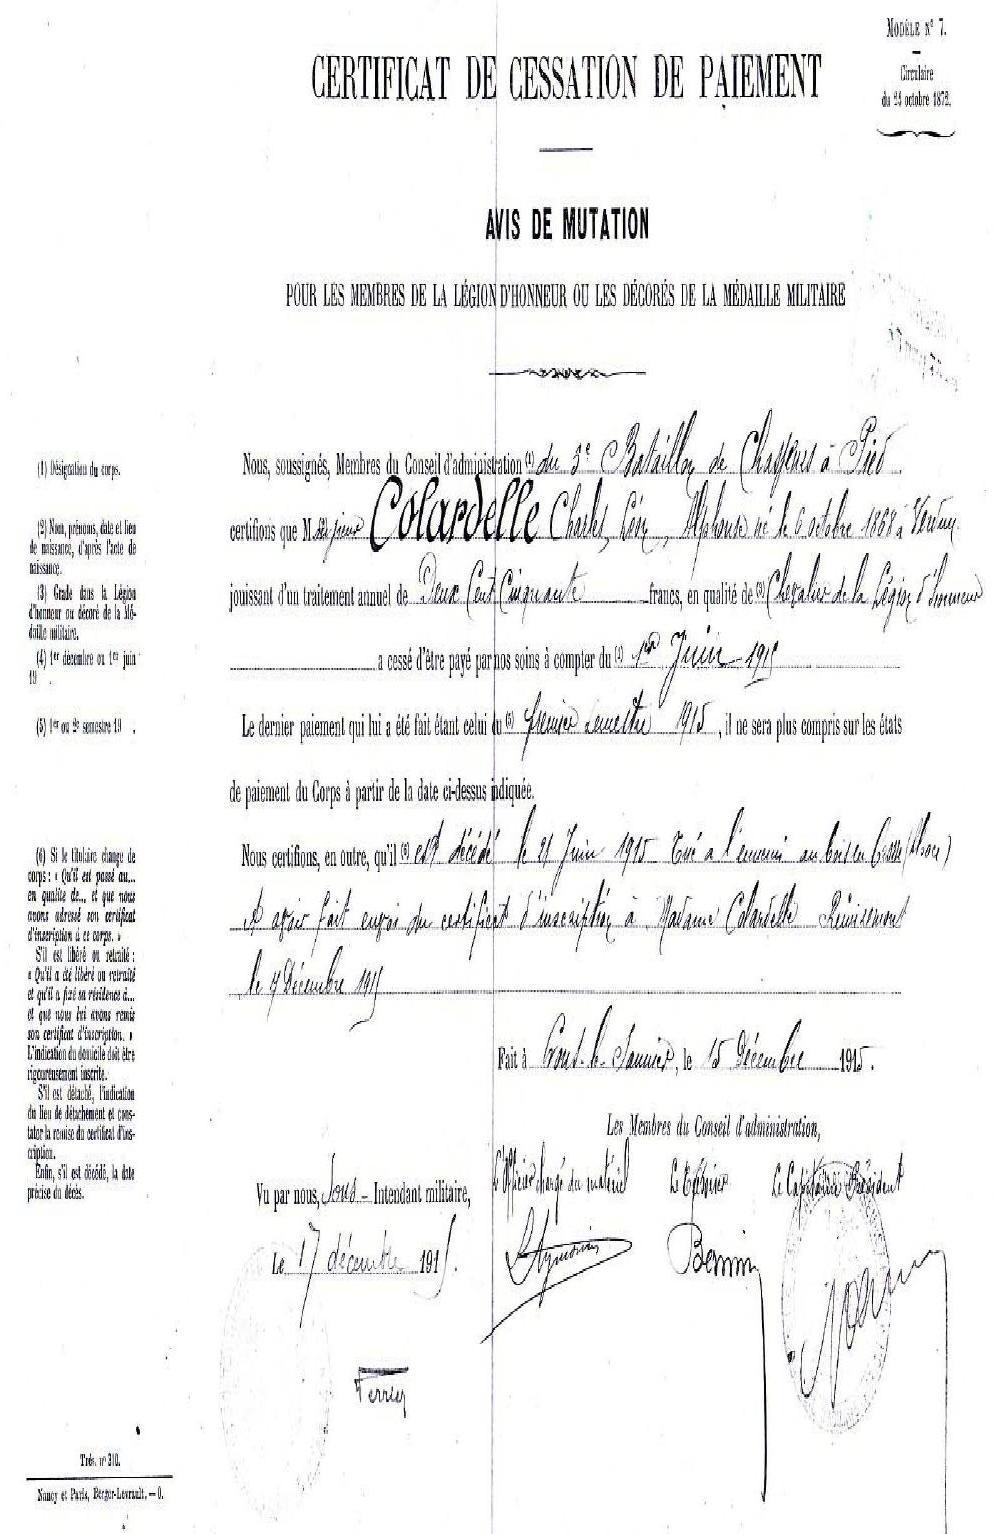 MODÈLE N° 7.
Circulaire
du 24 octobre 1872.
CERTIFICAT DE CESSATION DE PAIEMENT
AVIS DE MUTATION
POUR LES MEMBRES DE LA LÉGION D'HONNEUR OU LES DÉCORÉS DE LA MÉDAILLE MILITAIRE
(1) Désignation du corps.
(2) Nom, prénoms, date et lieu
de naissance, d'après l'acte de
naissance.
(3) Grade dans la Légion
d'honneur ou décoré de la Mé-
daille militaire.
(4) 1er décembre ou 1er juin
19 .
(5) 1er ou 2e semestre 19 .
(6) Si le titulaire change de
corps : « Qu'il est passé au...
en qualité de... et que nous
avons adressé son certificat
d'inscription à ce corps. »
S'il est libéré ou retraité :
« Qu'il a été libéré ou retraité
et qu'il a fixé sa résidence à...
et que nous lui avons remis
son certificat d'inscription. »
L'indication du domicile doit être
rigoureusement inscrite.
S'il est détaché, l'indication
du lieu de détachement et cons-
tater la remise du certificat d'ins-
cription.
Enfin, s'il est décédé, la date
précise du décès.
Nous, soussignés, Membres du Conseil d'administration (1) du 3e Bataillon de Chasseurs à Pied
certifions que M. Colardelle Charles, Léon, Alphonse né le 6 octobre 1868 à Verdun
jouissant d'un traitement annuel de Deux Cent Cinquante francs, en qualité de (3) Chevalier de la Légion d'honneur
a cessé d'être payé par nos soins à compter du (4) 1er Juin 1915
Le dernier paiement qui lui a été fait étant celui du (5) premier semestre 1915, il ne sera plus compris sur les états
de paiement du Corps à partir de la date ci-dessus indiquée.
Nous certifions, en outre, qu'il (6) est décédé le 21 Juin 1915 Tué à l'ennemi au (Alsace)
et avoir fait envoi du certificat d'inscription à Madame Colardelle Remiremont
le 7 Décembre 1915
Fait à Lons-le-Saunier, le 15 Décembre 1915.
Les Membres du Conseil d'administration,
L'Officier chargé du matériel Le Trésorier Le Capitaine Président
Vu par nous, Sous-Intendant militaire,
Le 17 décembre 1915.
Trés. n° 310.
Nancy et Paris, Berger-Levrault. — O.